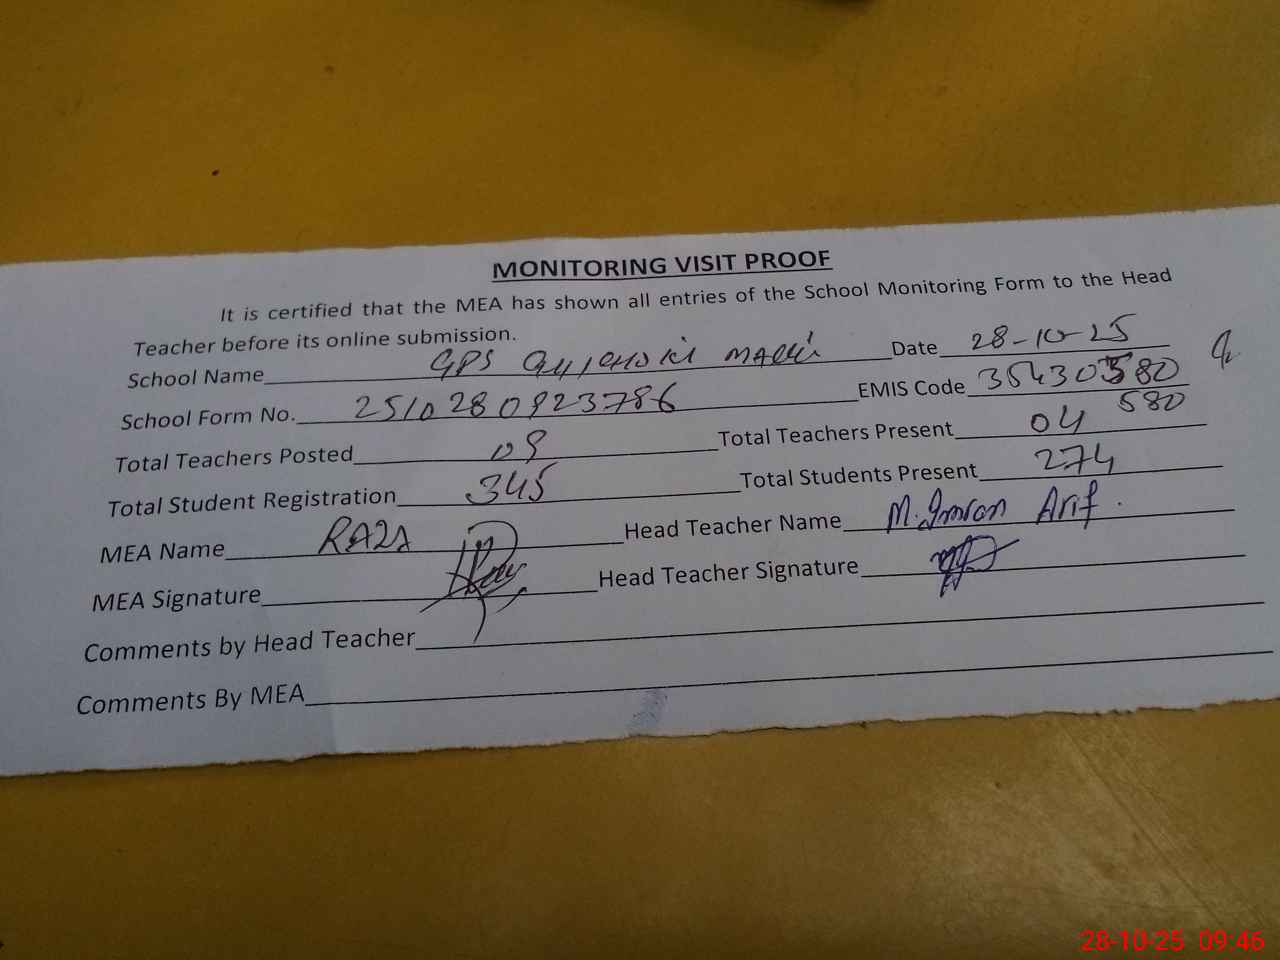 MONITORING VISIT PROOF
It is certified that the MEA has shown all entries of the School Monitoring Form to the Head
Teacher before its online submission.
School Name GPS Date 28-10-25
School Form No. 2510280923786 EMIS Code 35430580
580
Total Teachers Posted 09 Total Teachers Present 04
Total Student Registration 345 Total Students Present 274
MEA Name RAZA Head Teacher Name M. Imran Arif.
MEA Signature Head Teacher Signature
Comments by Head Teacher
Comments By MEA
28-10-25 09:46